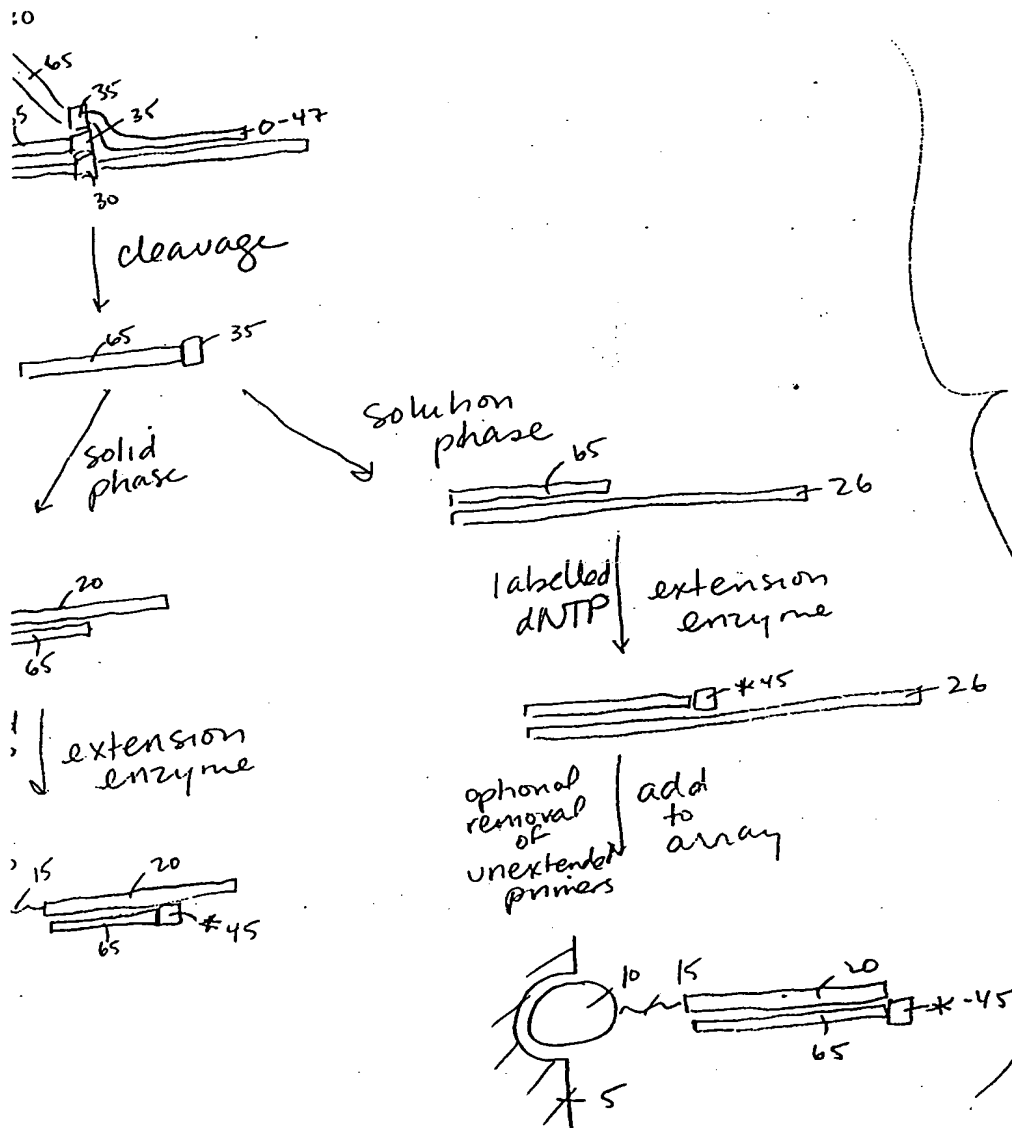 :0
65
35
35
5
0-47
30
cleavage
65
35
solid
phase
solution
phase
65
26
20
65
labelled
dNTP
extension
enzyme
extension
enzyme
*45
26
optional
removal
of
unextended
primers
add
to
array
15
20
65
*45
10
15
20
*-45
65
5